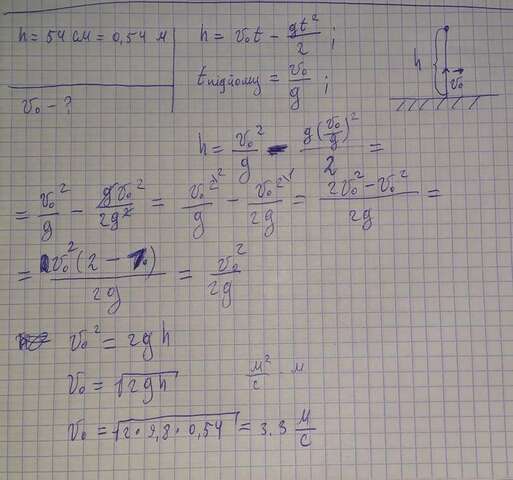 h = 54 см = 0,54 м
v₀ - ?
h = v₀t - gt²/2 ;
t підйому = v₀/g ;
h
v₀
h = v₀²/g - g(v₀/g)²/2 =
= v₀²/g - gv₀²/2g² = v₀²/g - v₀²/2g = 2v₀² - v₀²/2g =
= v₀²(2 - 1)/2g = v₀²/2g
v₀² = 2gh
v₀ = √2gh
м²/с · м
v₀ = √2·9,8·0,54 = 3.3 м/с